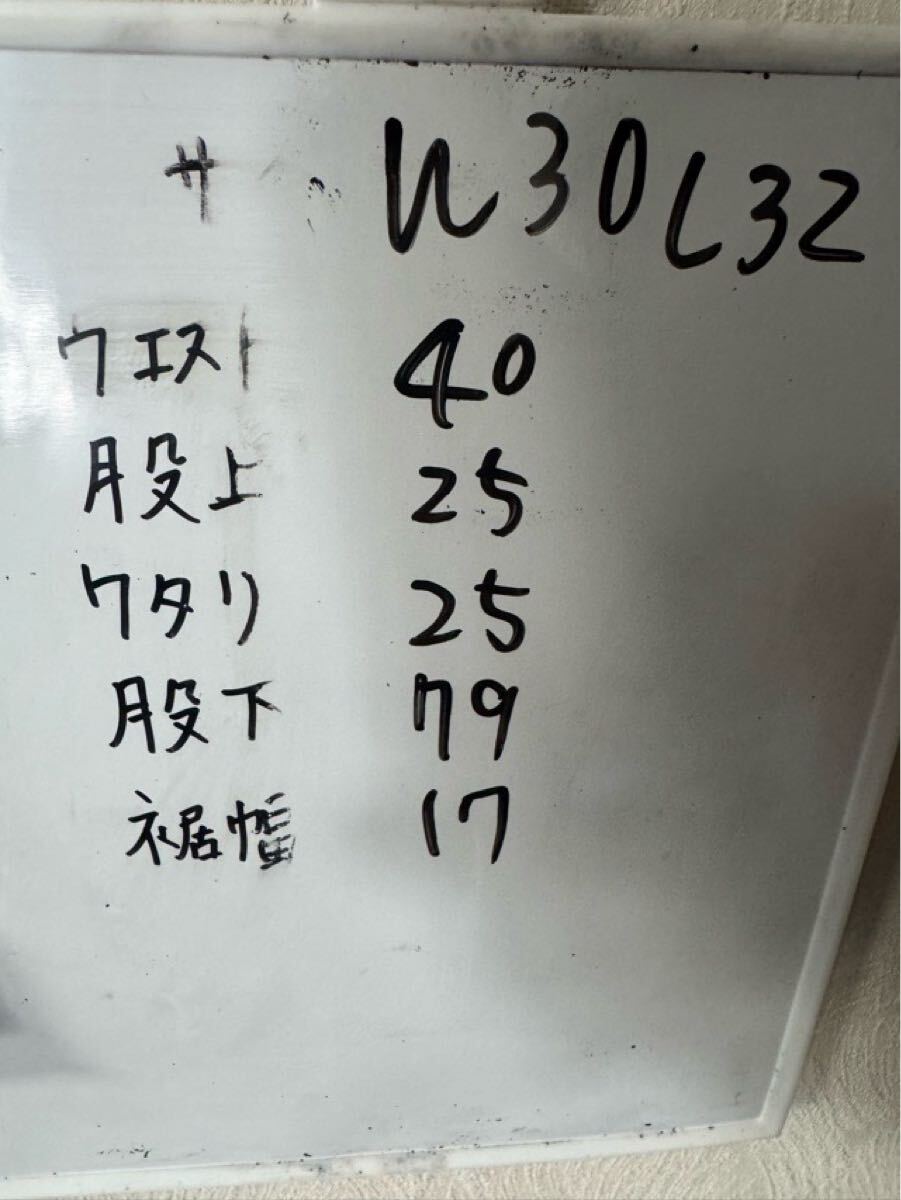 サ W30 L32
ウエスト 40
股上 25
ワタリ 25
股下 79
裾幅 17